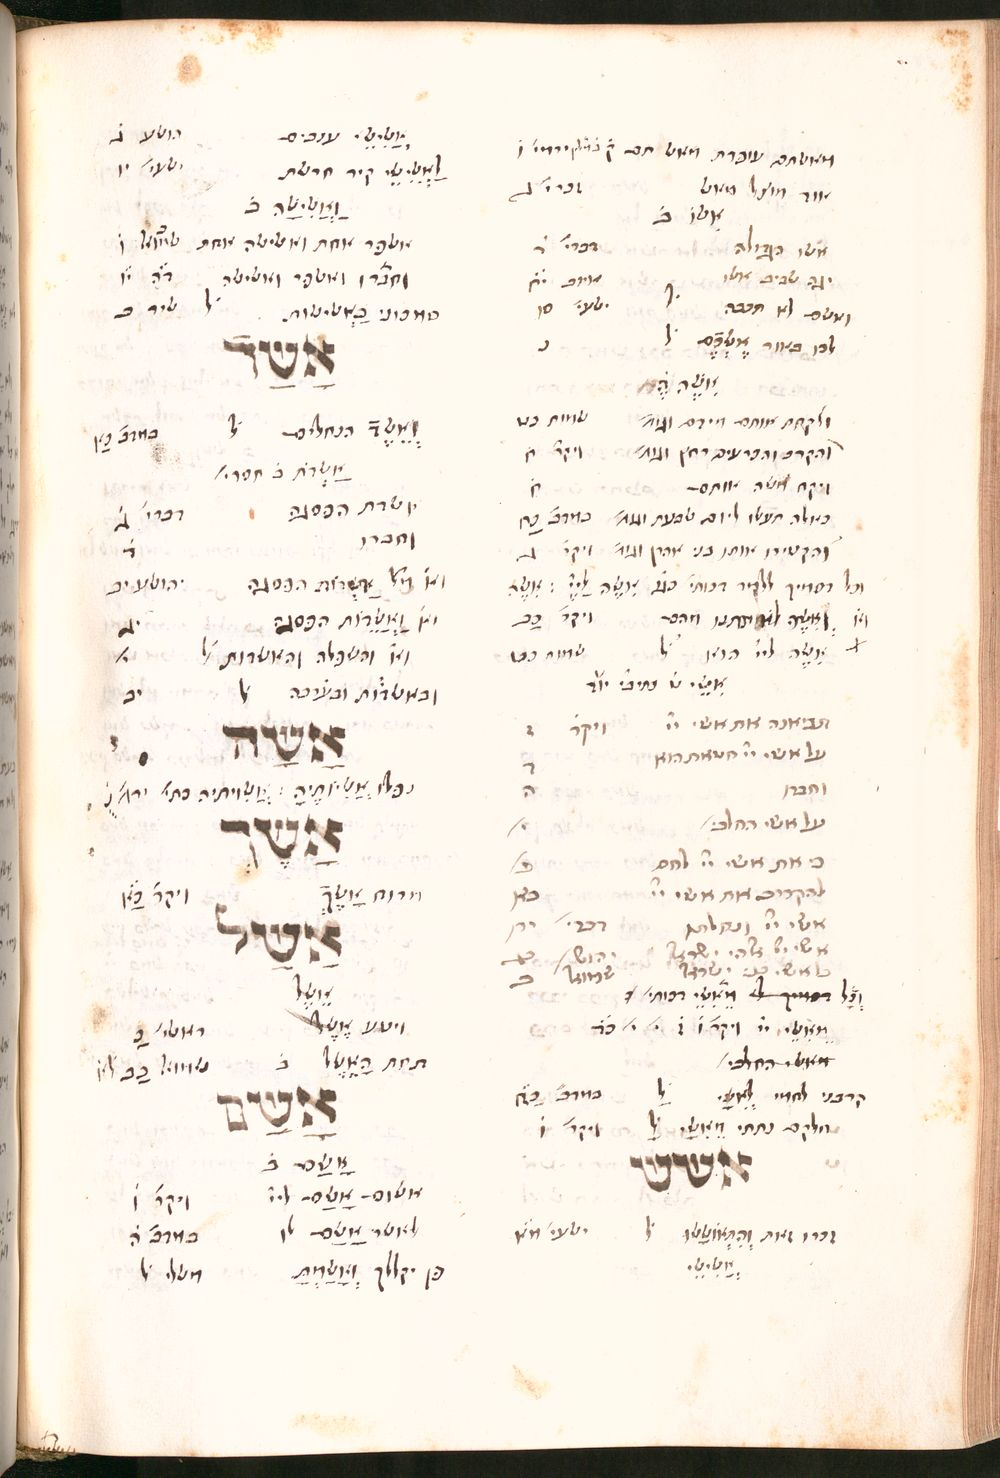 מאשתם עופרת מאש תם
אוד מוצל מאש זכרי׳ ג
אשו ב׳
אשו הגדולה דברי׳ ד׳
יגה שביב אשו איוב י״ח
ואשם לא תכבה ל׳ ישעי׳ סו
לכו באור אֶשְׁכֶם ל׳ נ
אִשֶּׁה
ולקחת אותם מידם וגו׳ שמות כט
והקרב והכרעים רחץ וגו׳ ויקר׳ ח
ויקח משה אותם ח
כאלה תעשו ליום שבעת וגו׳ במדב׳ כח
והקטירו אותו בני אהרן וגו׳ ויקר׳ ג
וכל דסמיך ללמד דכותי׳ כגו אִשֶּׁה לַיְיָ׳ : אִשֶּׁה
ואו וְאִשֶּׁה לא תתנו מהם ויקר׳ כב
אִשֶּׁה לַיְיָ׳ הוא ל׳ שמות כט
אִשֵּׁי
תביאנה את אשי יי׳ ויקר׳ ז
על אשי יי׳ חטאת הוא ד
וחברו ה
על אשי החלבי׳ י׳
כי את אשי יי׳ לחם כא
להקריב את אשי יי׳ כא
אשי יי׳ ונחלתו דברי׳ יח
אשי יי׳ אלהי ישראל יהוש׳ יג
כל אשי בני ישראל שמואל ב
וכל דסמיך ל׳ מֵאִשֵּׁי דכותי׳
מֵאִשֵּׁי יי׳ ויקר׳
מאשי החלבי׳
קרבני לחמי לְאִשַּׁי ל׳ במדב׳ כח
חלקם נתתי מֵאִשַּׁי ל׳ ויקר׳ ו׳
אשש
זכרו זאת וְהִתְאֹשָׁשׁוּ ל׳ ישעי׳ מו
אֲשִׁישֵׁי
וַאֲשִׁישֵׁי ענבים הושע ג׳
לַאֲשִׁישֵׁי קיר חרשת ישעי׳ יו
וַאֲשִׁישָׁה ב׳
אשפר אחת ואשישה אחת שמואל ו׳
וחברו ואשפר ואשישה ד״ה י״ו
סמכוני בָּאֲשִׁישׁוֹת ל׳ שיר ב
אשד
וְאֶשֶׁד הנחלים ל׳ במדב׳ כא
אַשְׁדֹּת ב׳ חסרי׳
אשדת הפסגה דברי׳ ג׳
וחברו ד׳
ואו מל׳ אַשְׁדּוֹת הפסגה יהושע יב
ואו וְאַשְׁדּוֹת הפסגה יג
ואו והשפלה והאשדות ל׳ י׳
ובאשדות ובערבה ל׳ יב
אשה
נפלו אָשְׁיוֹתֶיהָ : אֲשִׁוּיתיה כת׳ ירמ׳ נ׳
אשך
מרוח אָשֶׁךְ ויקר׳ כא
אשל
אֵשֶׁל
ויטע אֵשֶׁל ראשי׳ כ
תחת הָאֵשֶׁל ב׳ שמואל כב לא
אשם
אָשַׁם ב׳
אשום אָשַׁם ליי׳ ויקר׳ ו׳
לאשר אָשַׁם לו במדב׳ ה׳
פן יקללך וְאָשָׁמְתָּ משלי ל׳